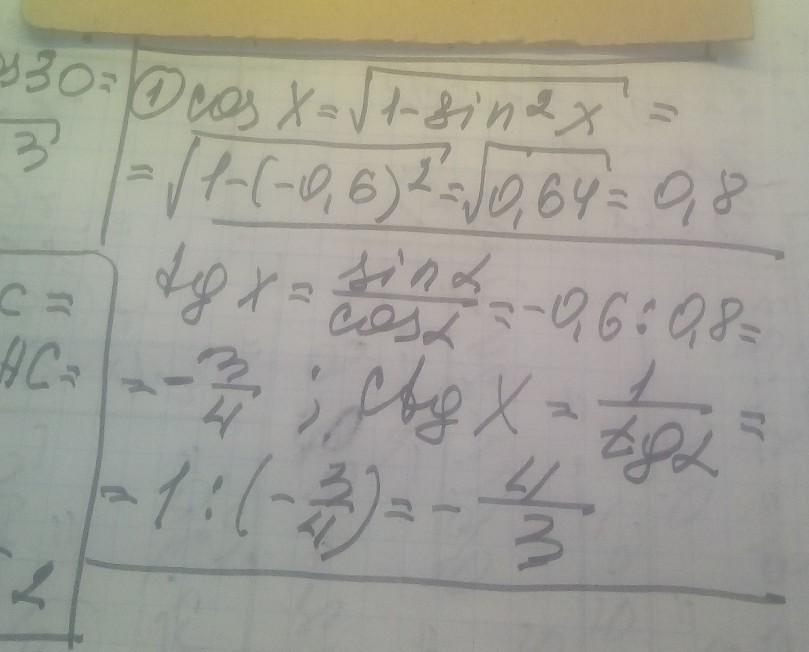 os30=
3
① cos x = √1-sin²x =
= √1-(-0,6)² = √0,64 = 0,8
tg x = sinα/cosα = -0,6 : 0,8 =
C =
AC =
= - 3/4 ; ctg x = 1/tgα =
= 1 : (- 3/4) = - 4/3
2